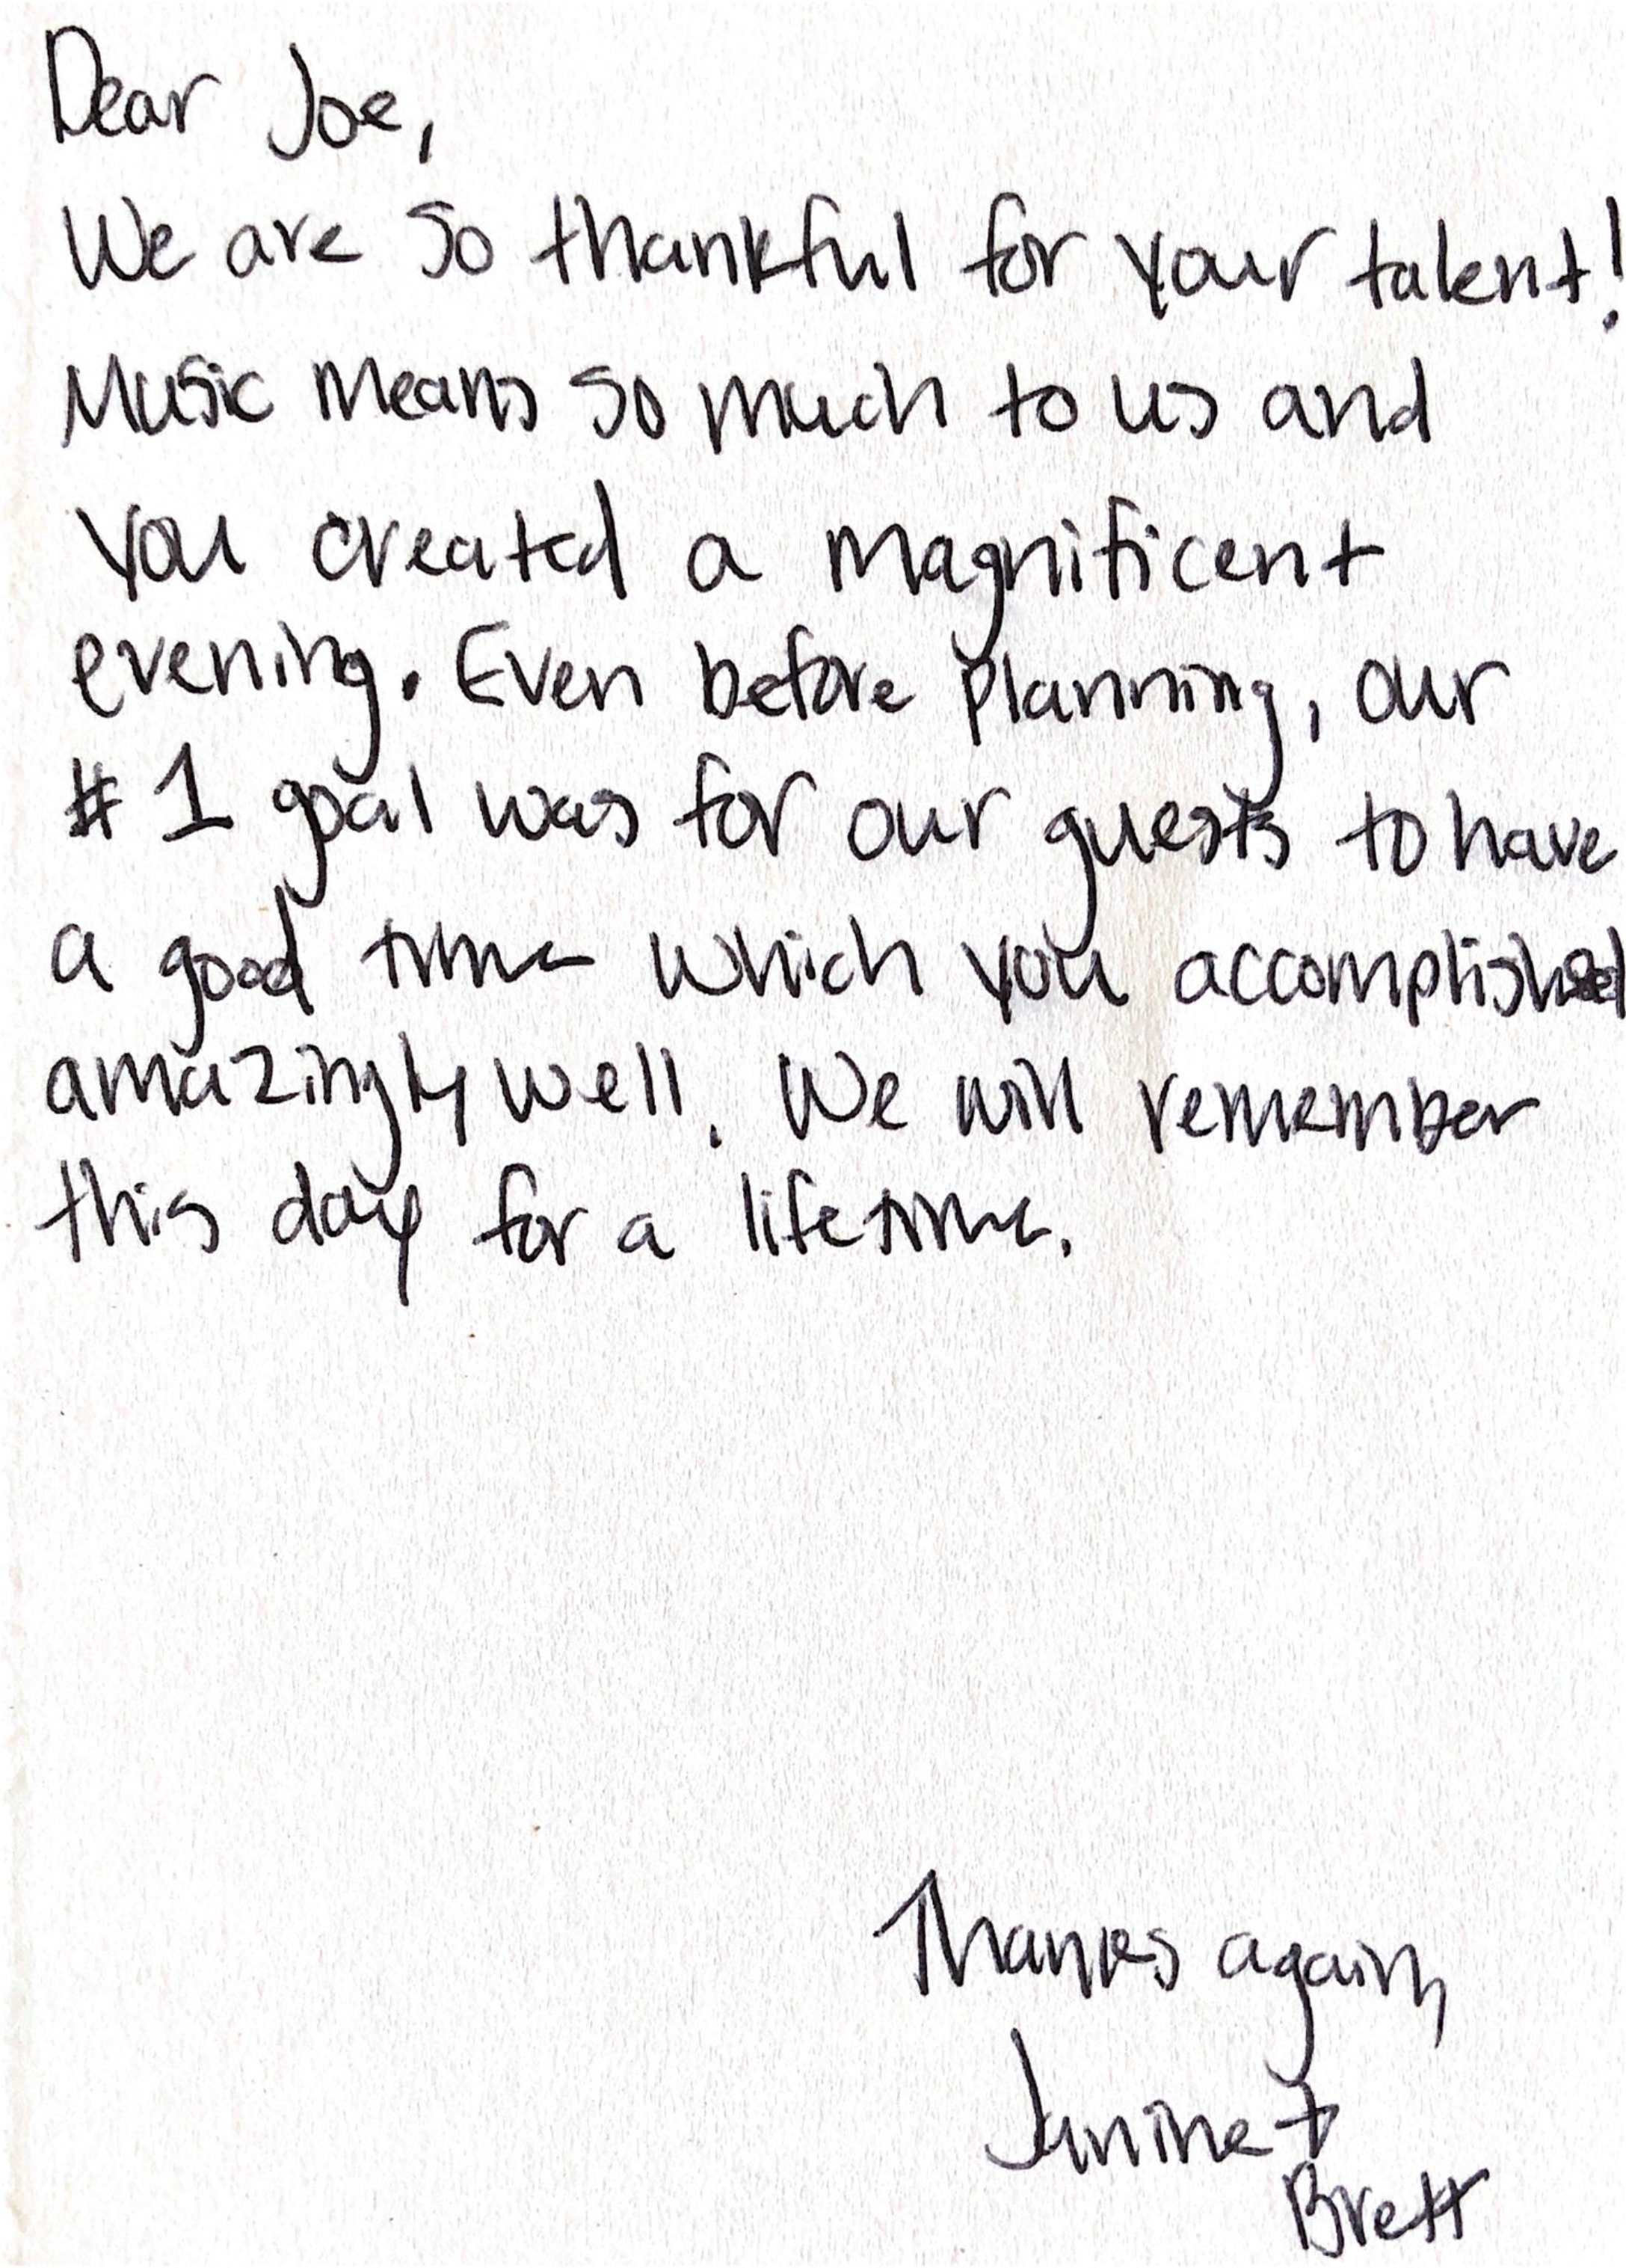 Dear Joe,
We are so thankful for your talent!
Music means so much to us and
you created a magnificent
evening. Even before planning, our
#1 goal was for our guests to have
a good time which you accomplished
amazingly well. We will remember
this day for a lifetime.
Thanks again,
Janine +
Brett